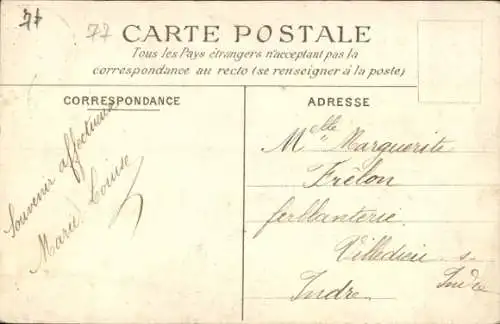 77 77
CARTE POSTALE
Tous les Pays étrangers n'acceptant pas la
correspondance au recto (se renseigner à la poste)
CORRESPONDANCE
Souvenir affectueux
Marie Louise
ADRESSE
Melle Marguerite
Frêlon
ferblanterie
Villedieu s
Indre
Indre